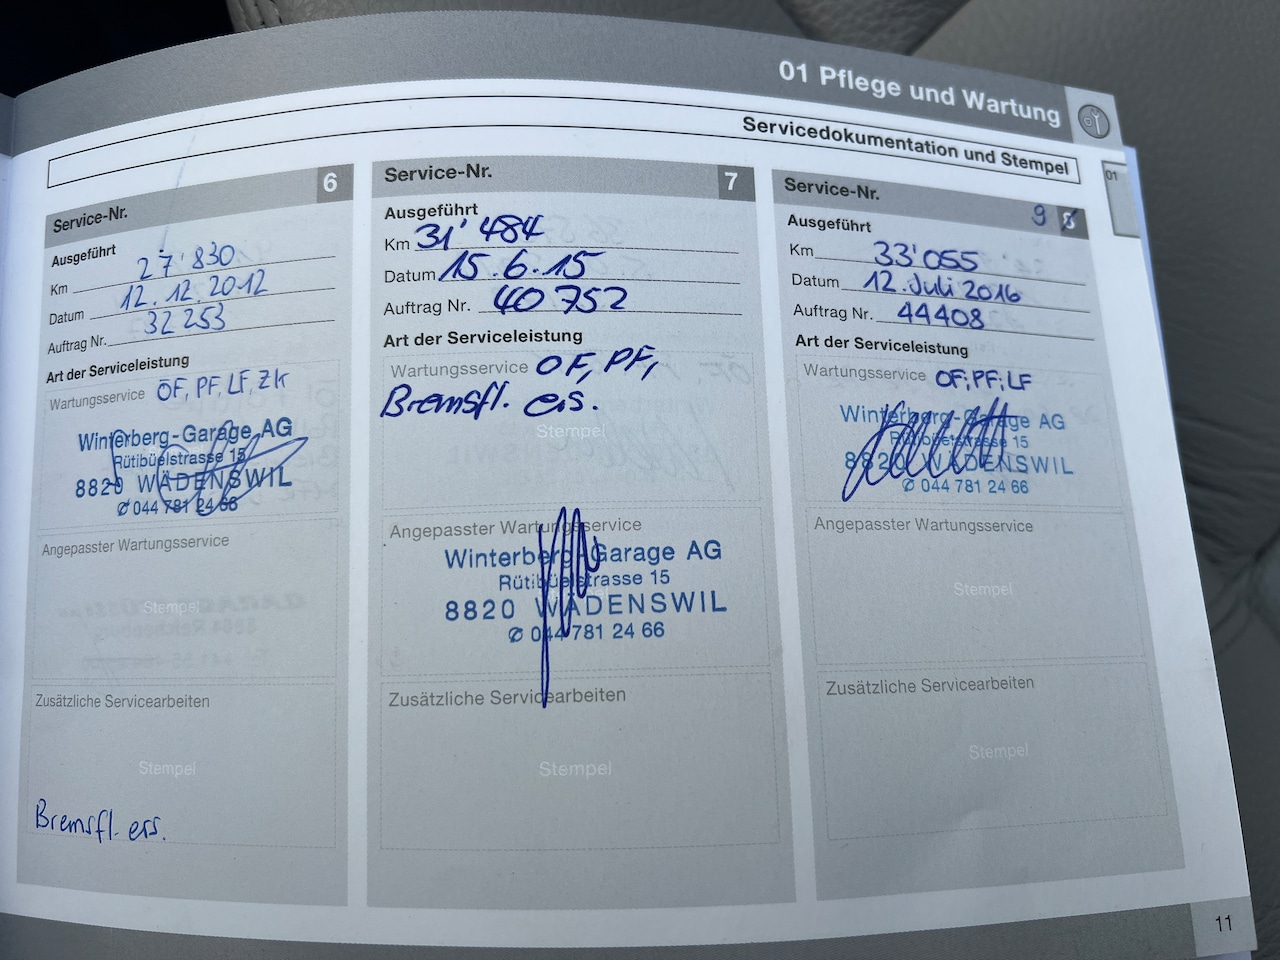 01 Pflege und Wartung
Servicedokumentation und Stempel
01
Service-Nr. 6
Ausgeführt
Km 27'830
Datum 12.12.2012
Auftrag Nr. 32253
Art der Serviceleistung
Wartungsservice ÖF, PF, LF, ZK
Winterberg-Garage AG
Rütibüelstrasse 15
8820 WÄDENSWIL
✆ 044 781 24 66
Angepasster Wartungsservice
Stempel
Zusätzliche Servicearbeiten
Stempel
Bremsfl. ers.
Service-Nr. 7
Ausgeführt
Km 31'484
Datum 15.6.15
Auftrag Nr. 40752
Art der Serviceleistung
Wartungsservice OF, PF,
Bremsfl. ers.
Stempel
Angepasster Wartungsservice
Winterberg-Garage AG
Rütibüelstrasse 15
8820 WÄDENSWIL
✆ 044 781 24 66
Zusätzliche Servicearbeiten
Stempel
Service-Nr. 9 8
Ausgeführt
Km 33'055
Datum 12. Juli 2016
Auftrag Nr. 44408
Art der Serviceleistung
Wartungsservice OF; PF; LF
Winterberg-Garage AG
Rütibüelstrasse 15
8820 WÄDENSWIL
✆ 044 781 24 66
Angepasster Wartungsservice
Stempel
Zusätzliche Servicearbeiten
Stempel
11